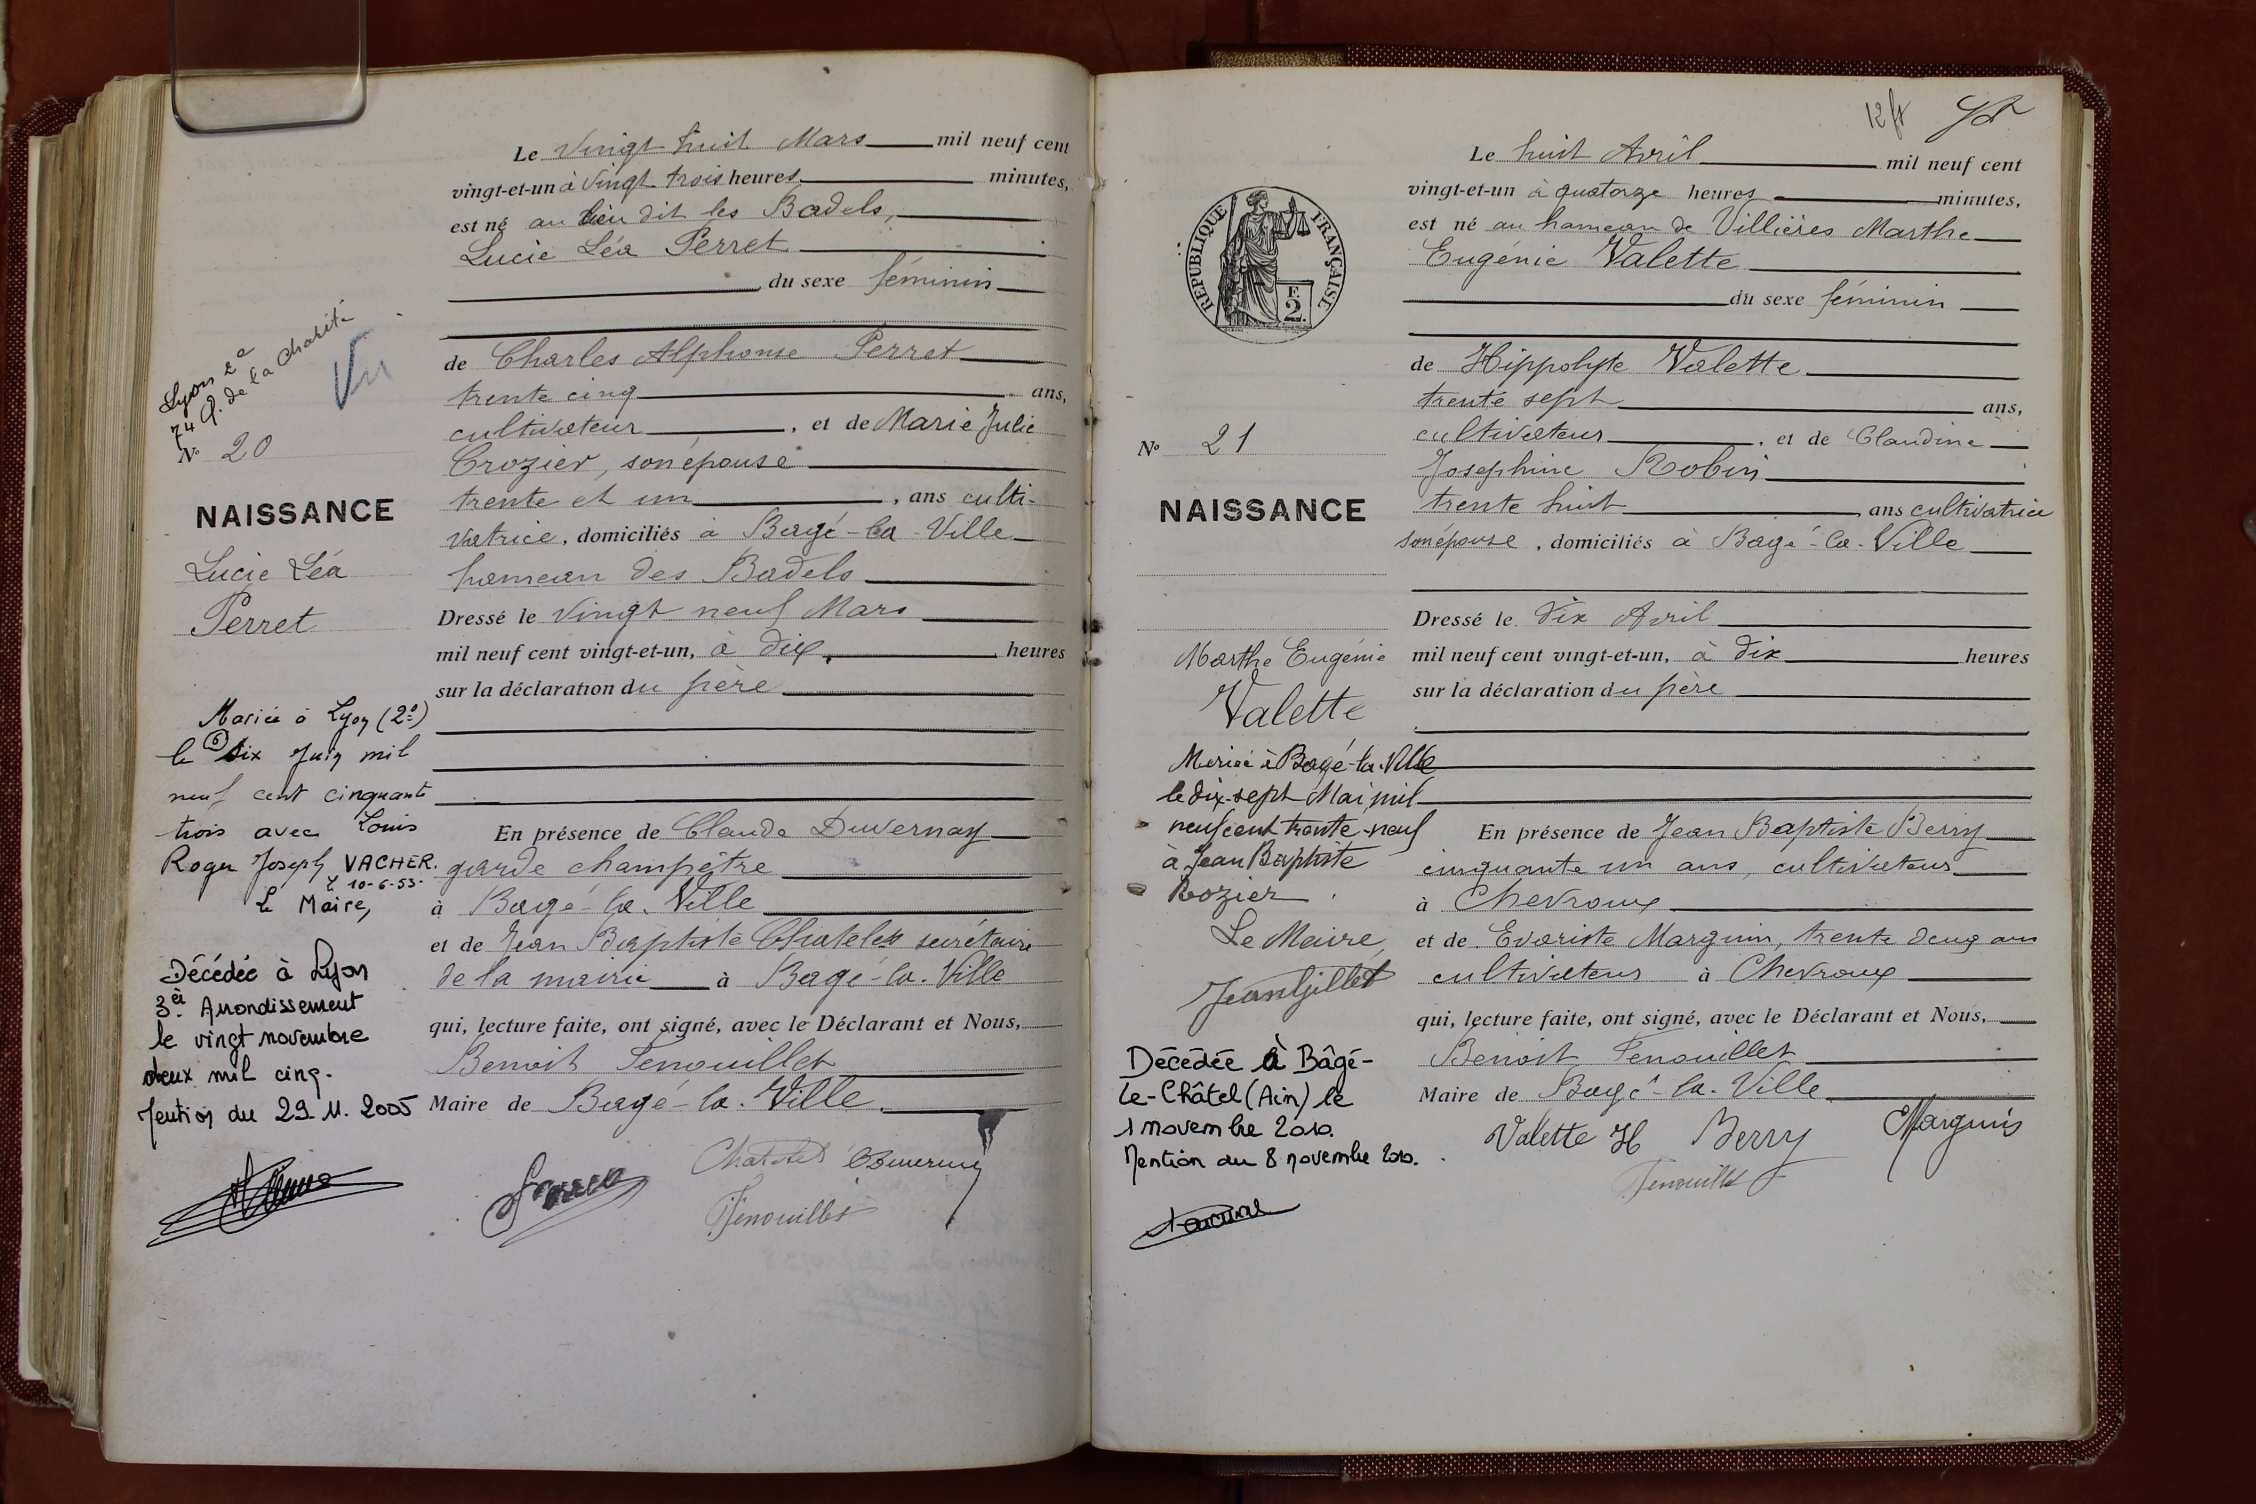 Lyon 2e
74 Q. de la Charité
Vu
No 20
NAISSANCE
Lucie Léa
Perret
Mariée à Lyon (2e)
le 6 six Juin mil
neuf cent cinquante
trois avec Louis
Roger Joseph VACHER.
10-6-53.
Le Maire,
Décédée à Lyon
3è Arrondissement
le vingt novembre
deux mil cinq.
Mention du 29.11.2005
Le vingt huit Mars mil neuf cent
vingt-et-un à vingt trois heures minutes,
est né au lieu dit les Badels,
Lucie Léa Perret
du sexe féminin
de Charles Alphonse Perret
trente cinq ans,
cultivateur, et de Marie Julie
Crozier, son épouse
trente et un, ans culti-
vatrice, domiciliés à Bagé-la-Ville
hameau des Badels
Dressé le vingt neuf Mars
mil neuf cent vingt-et-un, à dix, heures
sur la déclaration du père
En présence de Claude Duvernay
garde champêtre
à Bagé-la-Ville
et de Jean Baptiste Chatelet secrétaire
de la mairie à Bagé-la-Ville
qui, lecture faite, ont signé, avec le Déclarant et Nous,
Benoit Fenouillet
Maire de Bagé-la-Ville.
Chatelet Duvernay
Fenouillet
12 ft
RÉPUBLIQUE FRANÇAISE
F.
2.
No 21
NAISSANCE
Marthe Eugénie
Valette
Mariée à Bagé-la-Ville
le dix-sept Mai mil
neuf cent trente-neuf
à Jean Baptiste
Rozier
Le Maire,
Jean Gillet
Décédée à Bâgé-
Le-Châtel (Ain) le
1 novembre 2010.
Mention du 8 novembre 2010.
Le huit Avril mil neuf cent
vingt-et-un à quatorze heures minutes,
est né au hameau de Villières Marthe
Eugénie Valette
du sexe féminin
de Hippolyte Valette
trente sept ans,
cultivateur, et de Claudine
Josephine Robin
trente huit ans cultivatrice
son épouse, domiciliés à Bagé-la-Ville
Dressé le dix Avril
mil neuf cent vingt-et-un, à dix heures
sur la déclaration du père
En présence de Jean Baptiste Berry
cinquante un ans, cultivateur
à Chevroux
et de Evariste Marguin, trente deux ans
cultivateur à Chevroux
qui, lecture faite, ont signé, avec le Déclarant et Nous,
Benoit Fenouillet
Maire de Bagé-la-Ville
Valette H Berry Marguin
Fenouillet